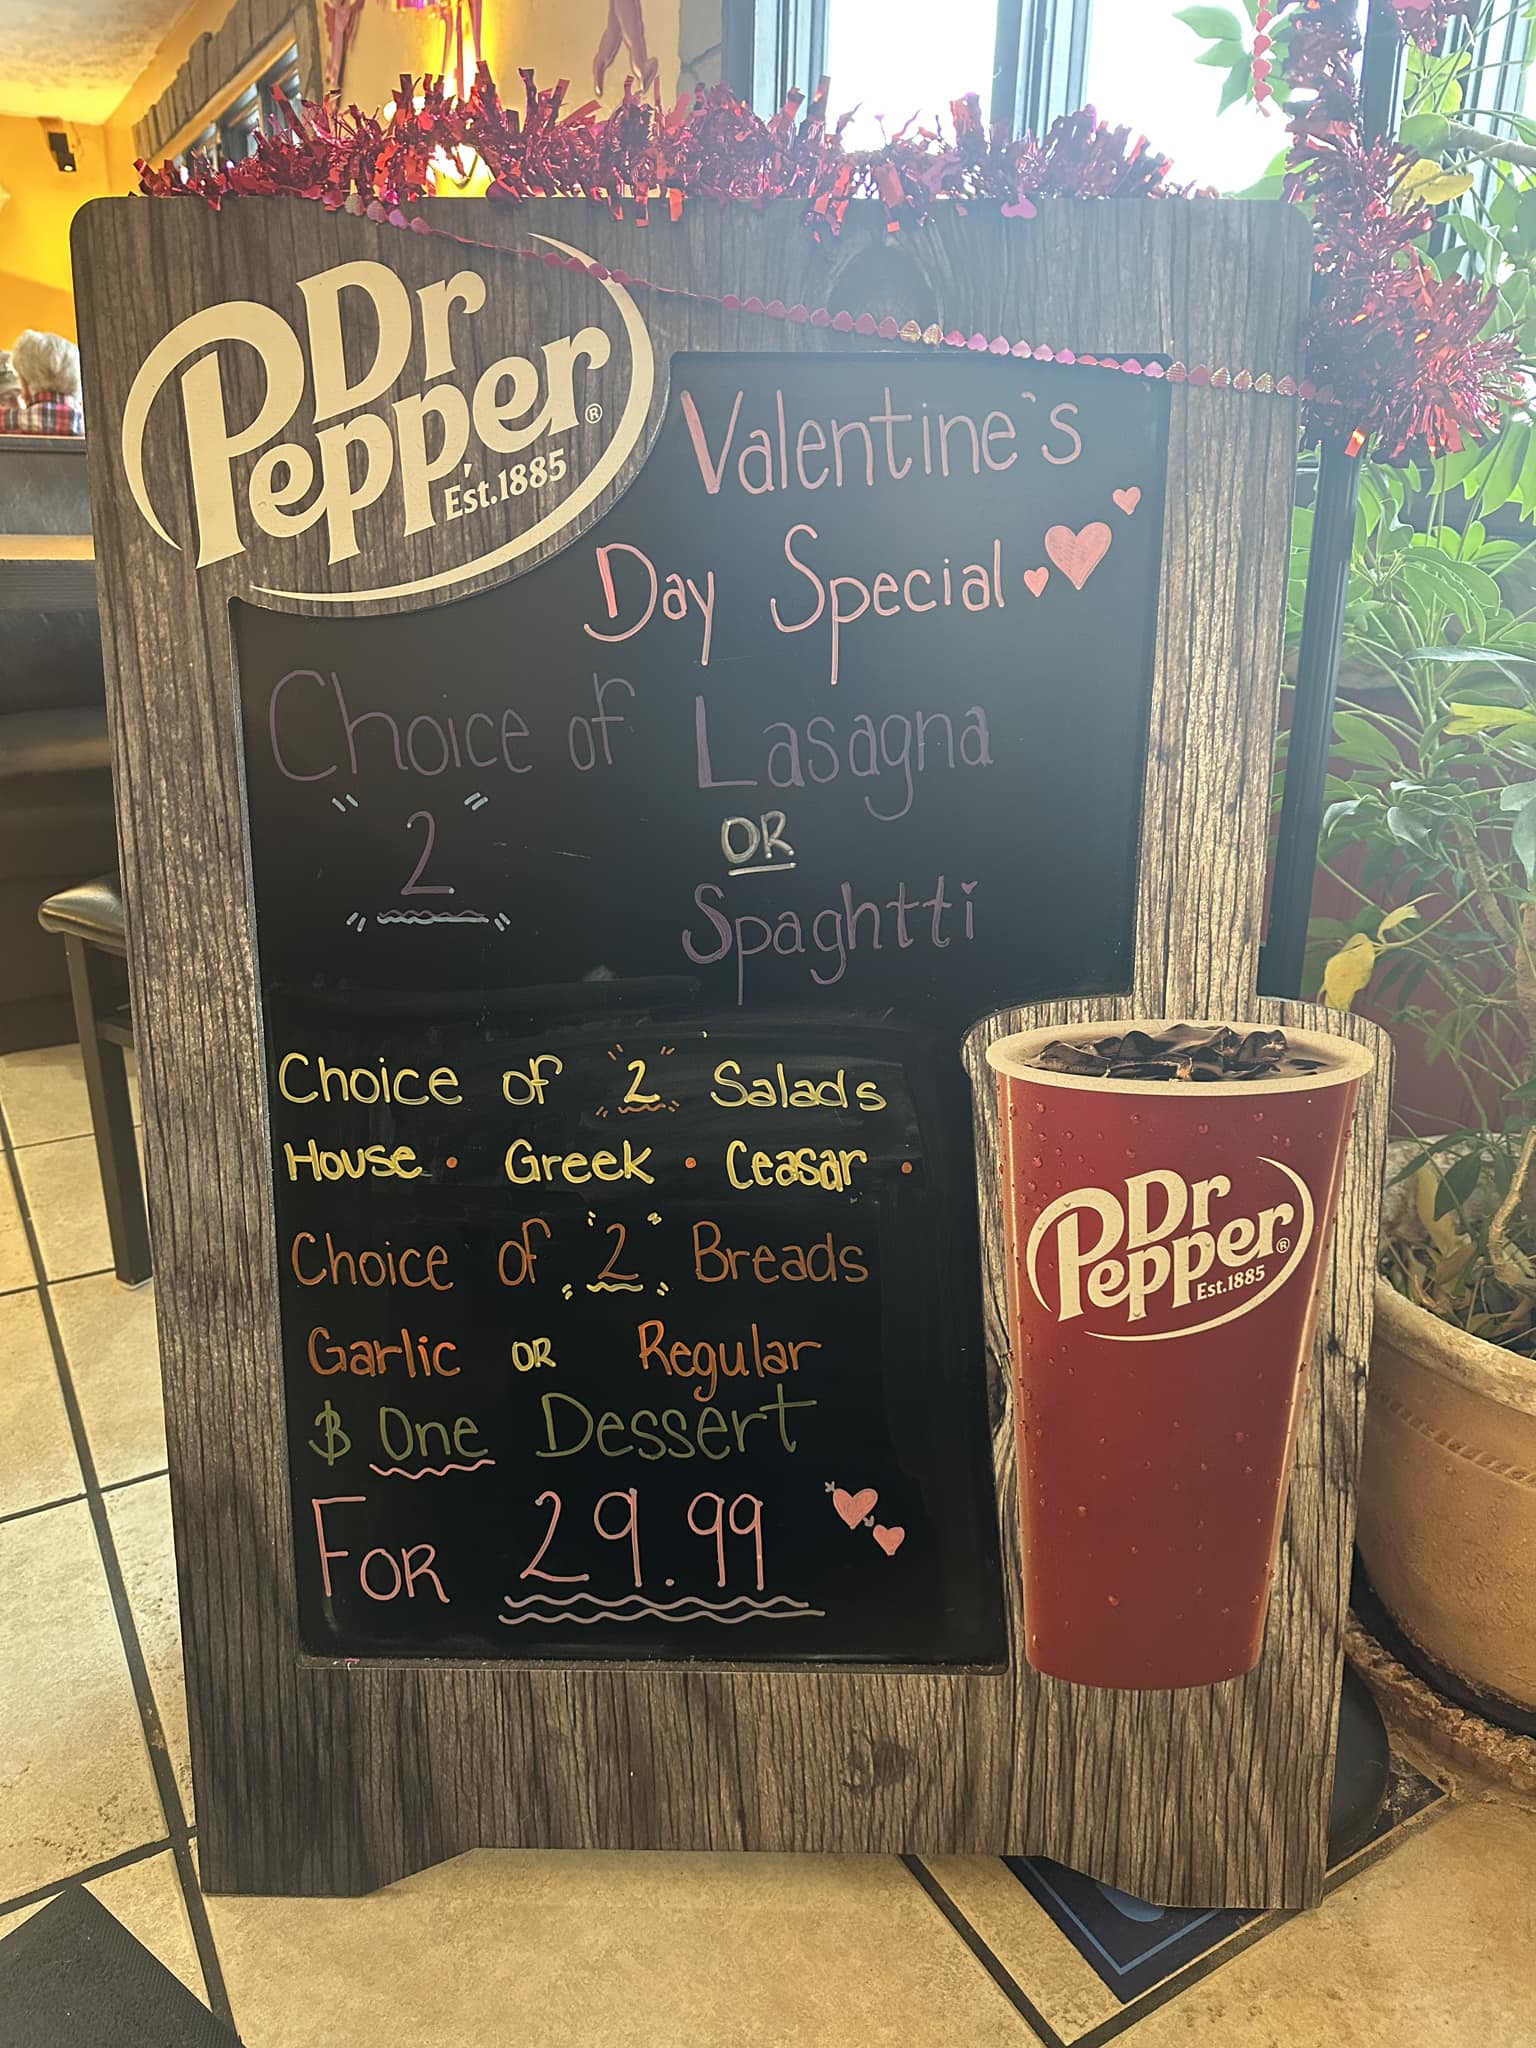 Dr
Pepper®
Est.1885
Valentine's
Day Special
Choice of Lasagna
"2"
OR
Spaghtti
Choice of "2" Salads
House • Greek • Ceasar •
Choice of "2" Breads
Garlic OR Regular
$ One Dessert
FOR 29.99
Dr
Pepper®
Est.1885